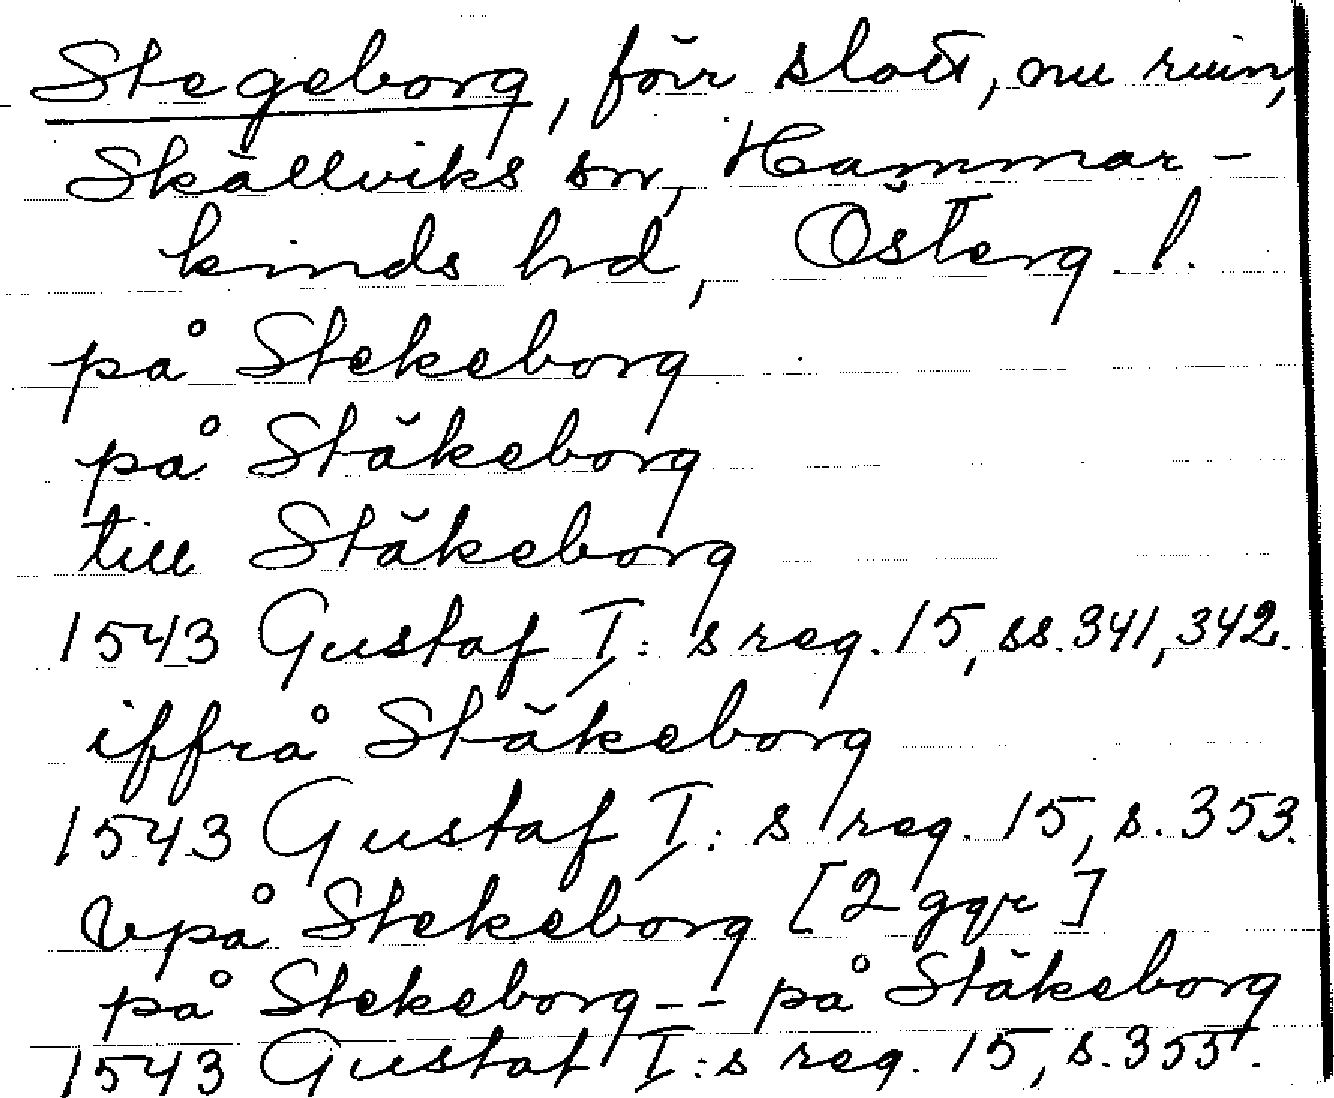 Stegeborg, förr slott, nu ruin,
Skällviks sn, Hammar-
kinds hrd, Österg l.
på Stekeborg
på Stäkeborg
till Stäkeborg
1543 Gustaf I:s reg. 15, ss. 341, 342.
iffrå Stäkeborg
1543 Gustaf I:s reg. 15, s. 353.
Vpå Stekeborg [2 ggr]
på Stekeborg -- på Stäkeborg
1543 Gustaf I:s reg. 15, s. 355.